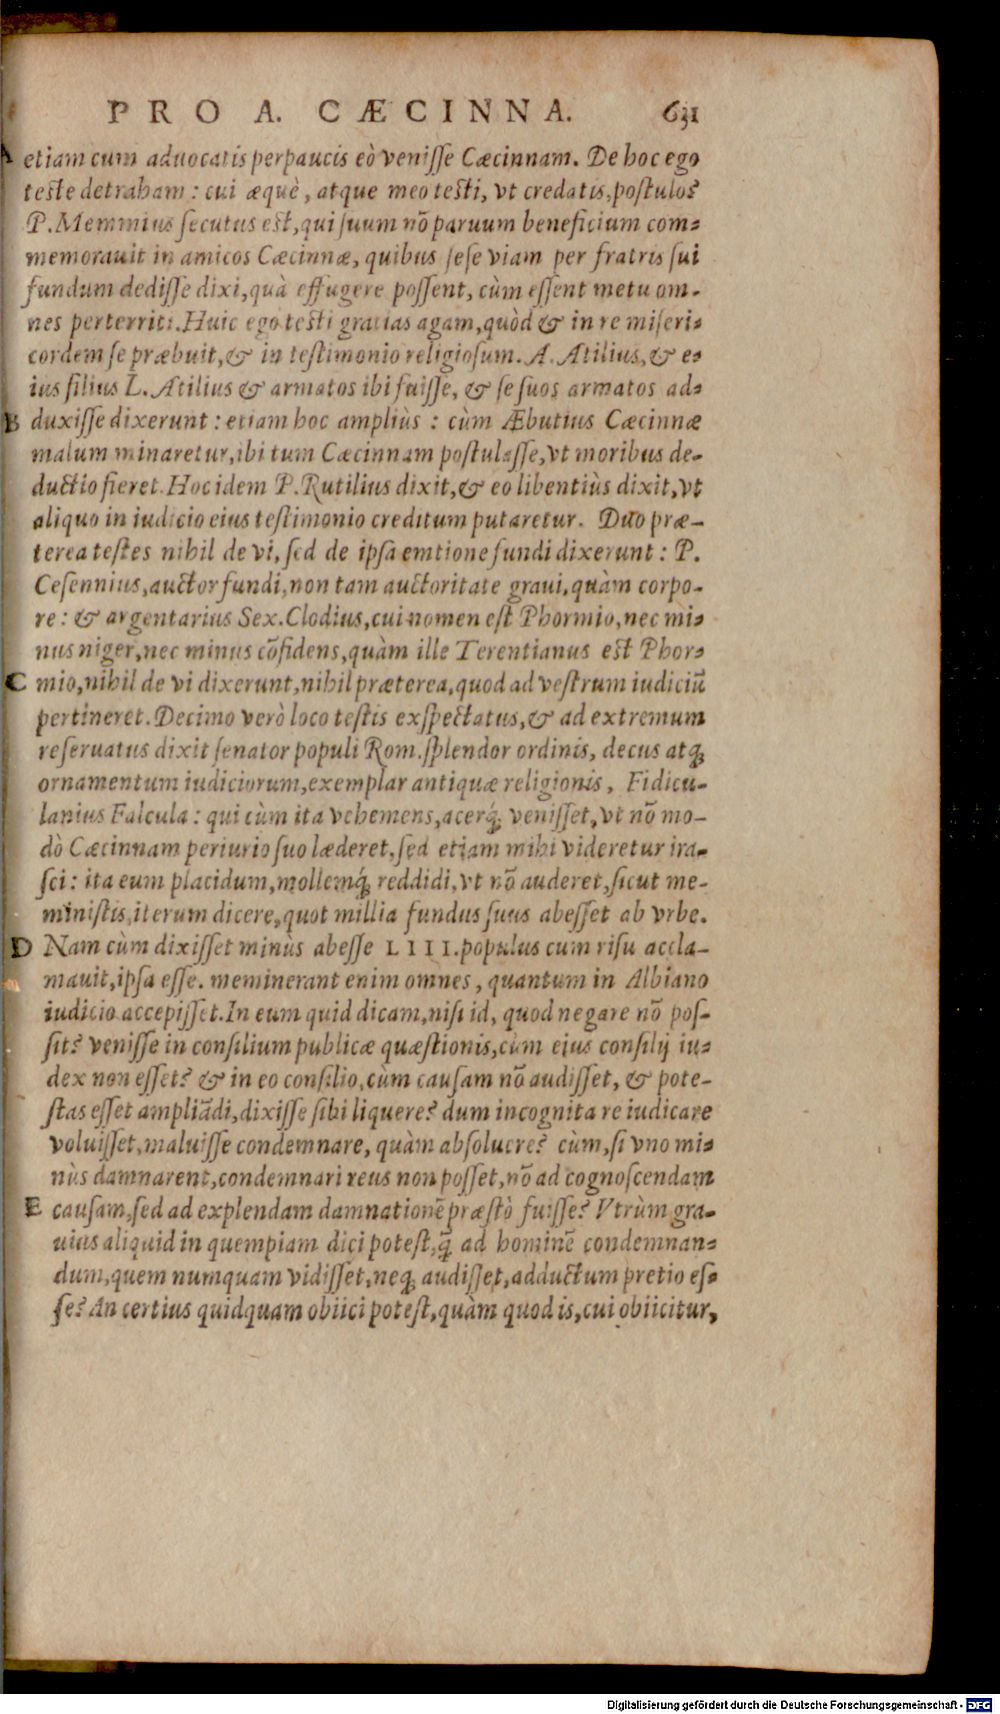 PRO A. CÆCINNA. 631
A etiam cum aduocatis perpaucis eò veniſſe Cæcinnam. De hoc ego
teſte detraham : cui æquè, atque meo teſti, vt credatis, poſtulo?
P. Memmius ſecutus eſt, qui ſuum nō paruum beneficium com-
memorauit in amicos Cæcinnæ, quibus ſeſe viam per fratris ſui
fundum dediſſe dixi, quà effugere poſſent, cùm eſſent metu om-
nes perterriti. Huic ego teſti gratias agam, quòd & in re miſeri-
cordem ſe præbuit, & in teſtimonio religioſum. A. Atilius, & e-
ius filius L. Atilius & armatos ibi fuiſſe, & ſe ſuos armatos ad-
B duxiſſe dixerunt : etiam hoc ampliùs : cùm Æbutius Cæcinnæ
malum minaretur, ibi tum Cæcinnam poſtulaſſe, vt moribus de-
ductio fieret. Hoc idem P. Rutilius dixit, & eo libentiùs dixit, vt
aliquo in iudicio eius teſtimonio creditum putaretur. Duo præ-
terea teſtes nihil de vi, ſed de ipſa emtione fundi dixerunt : P.
Ceſennius, auctor fundi, non tam auctoritate graui, quàm corpo-
re : & argentarius Sex. Clodius, cui nomen eſt Phormio, nec mi-
nus niger, nec minus cōfidens, quàm ille Terentianus eſt Phor-
C mio, nihil de vi dixerunt, nihil præterea, quod ad veſtrum iudiciū
pertineret. Decimo verò loco teſtis exſpectatus, & ad extremum
reſeruatus dixit ſenator populi Rom. ſplendor ordinis, decus atq;
ornamentum iudiciorum, exemplar antiquæ religionis, Fidicu-
lanius Falcula : qui cùm ita vehemens, acerq́; veniſſet, vt nō mo-
dò Cæcinnam periurio ſuo læderet, ſed etiam mihi videretur ira-
ſci : ita eum placidum, mollemq́; reddidi, vt nō auderet, ſicut me-
miniſtis, iterum dicere, quot millia fundus ſuus abeſſet ab vrbe.
D Nam cùm dixiſſet minùs abeſſe LIII. populus cum riſu accla-
mauit, ipſa eſſe. meminerant enim omnes, quantum in Albiano
iudicio accepiſſet. In eum quid dicam, niſi id, quod negare nō poſ-
ſit? veniſſe in conſilium publicæ quæſtionis, cùm eius conſilij iu-
dex non eſſet? & in eo conſilio, cùm cauſam nō audiſſet, & pote-
ſtas eſſet ampliādi, dixiſſe ſibi liquere? dum incognita re iudicare
voluiſſet, maluiſſe condemnare, quàm abſoluere? cùm, ſi vno mi-
nùs damnarent, condemnari reus non poſſet, nō ad cognoſcendam
E cauſam, ſed ad explendam damnationē præſtò fuiſſe? Vtrùm gra-
uius aliquid in quempiam dici poteſt, q̄; ad hominē condemnan-
dum, quem numquam vidiſſet, neq; audiſſet, adductum pretio eſ-
ſe? An certius quidquam obiici poteſt, quàm quod is, cui obiicitur,
Digitalisierung gefördert durch die Deutsche Forschungsgemeinschaft - DFG